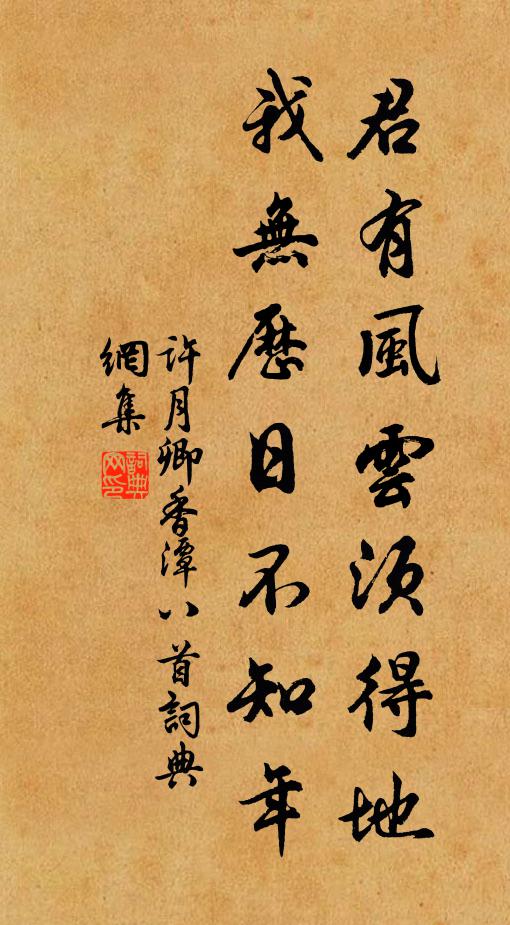 君有風雲須得地
我無曆日不知年
許月卿香潭八首詞典
網集
詞典网印